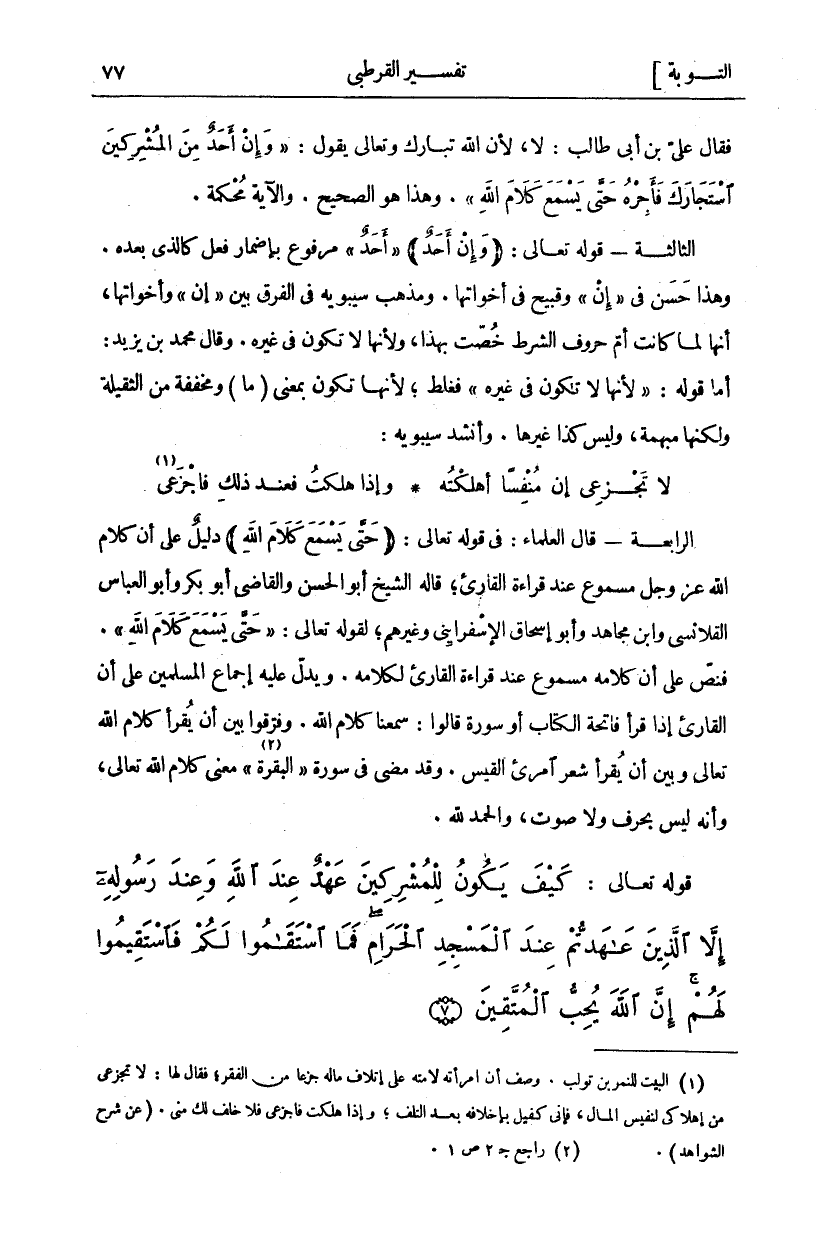 التـــوبة ] تفســـير القرطبى ٧٧
فقال علىّ بن أبى طالب : لا، لأن الله تبارك وتعالى يقول : « وَإِنْ أَحَدٌ مِنَ الْمُشْرِكِينَ
ٱسْتَجَارَكَ فَأَجِرْهُ حَتَّى يَسْمَعَ كَلَامَ اللهِ » . وهذا هو الصحيح . والآية مُحْكمة .
الثالثـــة — قوله تعـالى : ﴿ وَإِنْ أَحَدٌ ﴾ « أَحَدٌ » مرفوع بإضمار فعل كالذى بعده .
وهذا حَسَن فى « إِنْ » وقبيح فى أخواتها . ومذهب سيبويه فى الفرق بين « إن » وأخواتها،
أنها لما كانت أمّ حروف الشرط خُصّت بهذا، ولأنها لا تكون فى غيره . وقال محمد بن يزيد :
أما قوله : « لأنها لا تكون فى غيره » فغلط ؛ لأنهـا تكون بمعنى ( ما ) ومخففة من الثقيلة
ولكنها مبهمة، وليس كذا غيرها . وأنشد سيبويه :
لا تَجْـزعِى إن مُنْفِسًا أهلكْتُه * وإذا هلكتُ فعنـد ذلكِ فاجْزَعِى (١)
الرابعـــة — قال العلماء : فى قوله تعالى : ﴿ حَتَّى يَسْمَعَ كَلَامَ اللهِ ﴾ دليلٌ على أن كلام
الله عز وجل مسموع عند قراءة القارئ؛ قاله الشيخ أبو الحسن والقاضى أبو بكر وأبو العباس
القلانسى وابن مجاهد وأبو إسحاق الإسْفراينى وغيرهم؛ لقوله تعالى : « حَتَّى يَسْمَعَ كَلَامَ اللهِ » .
فنصّ على أن كلامه مسموع عند قراءة القارئ لكلامه . ويدلّ عليه إجماع المسلمين على أن
القارئ إذا قرأ فاتحة الكتاب أو سورة قالوا : سمعنا كلام الله . وفرّقوا بين أن يُقرأ كلام الله
تعالى وبين أن يُقرأ شعر ٱمرئ القيس . وقد مضى فى سورة « البقرة » (٢) معنى كلام الله تعالى،
وأنه ليس بحرف ولا صوت، والحمد لله .
قوله تعـالى : كَيْفَ يَكُونُ لِلْمُشْرِكِينَ عَهْدٌ عِندَ ٱللَّهِ وَعِندَ رَسُولِهِۦٓ
إِلَّا ٱلَّذِينَ عَـٰهَدتُّمْ عِندَ ٱلْمَسْجِدِ ٱلْحَرَامِ ۖ فَمَا ٱسْتَقَـٰمُوا لَكُمْ فَٱسْتَقِيمُوا
لَهُمْ ۚ إِنَّ ٱللَّهَ يُحِبُّ ٱلْمُتَّقِينَ ﴿٧﴾
(١) البيت للنمر بن تولب . وصف أن امرأته لامته على إتلاف ماله جزعا من الفقر؛ فقال لها : لا تجزعى
من إهلاكى لنفيس المـال، فإنى كفيل بإخلافه بعـد التلف ؛ وإذا هلكت فاجزعى فلا خلف لك منى . ( عن شرح
الشواهد ) . (٢) راجع جـ ٢ ص ١ .